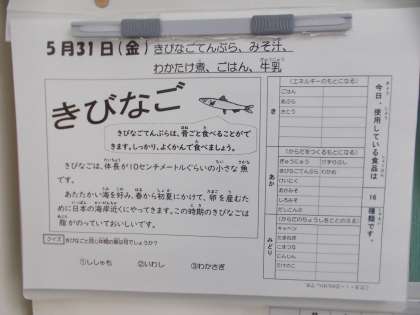 5月31日(金) きびなごてんぷら、みそ汁、
わかたけ煮、ごはん、牛乳
きびなご
きびなごてんぷらは、骨ごと食べることができます。しっかり、よくかんで食べましょう。
きびなごは、体長が10センチメートルぐらいの小さな魚
です。
あたたかい海を好み、春から初夏にかけて、卵を産むた
めに日本の海岸近くにやってきます。この時期のきびなごは
脂がのっていておいしいです。
クイズ きびなごと同じ種類の魚は何でしょうか?
①ししゃも ②いわし ③わかさぎ
今日、使用している食品は
16
種類です。
き
(エネルギーのもとになる)
ごはん
あぶら
さとう
あか
(からだをつくるもとになる)
ぎゅうにゅう
きびなごてんぷら わかめ
けいにく
あかみそ
しろみそ
だしこんぶ
みどり
(からだのちょうしをととのえる)
キャベツ
たまねぎ
こまつな
にんじん
たけのこ